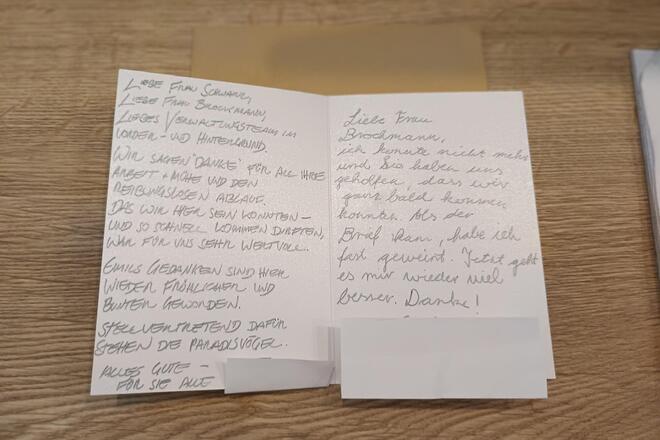 Liebe Frau Schwarz,
Liebe Frau Brockmann,
Liebes Verwaltungsteam im
Vorder- und Hintergrund.
Wir sagen "Danke" für all Ihre
Arbeit + Mühe und den
reibungslosen Ablauf.
Das wir hier sein konnten –
und so schnell kommen durften,
war für uns sehr wertvoll.
Emils Gedanken sind hier
wieder fröhlicher und
bunter geworden.
Stellvertretend dafür
stehen die Paradisvögel.
Alles Gute –
für Sie alle
Liebe Frau
Brochmann,
ich konnte nicht mehr
und Sie haben uns
geholfen, dass wir
ganz bald kommen
konnten. Als der
Brief kam, habe ich
fast geweint. Jetzt geht
es mir wieder viel
besser. Danke!